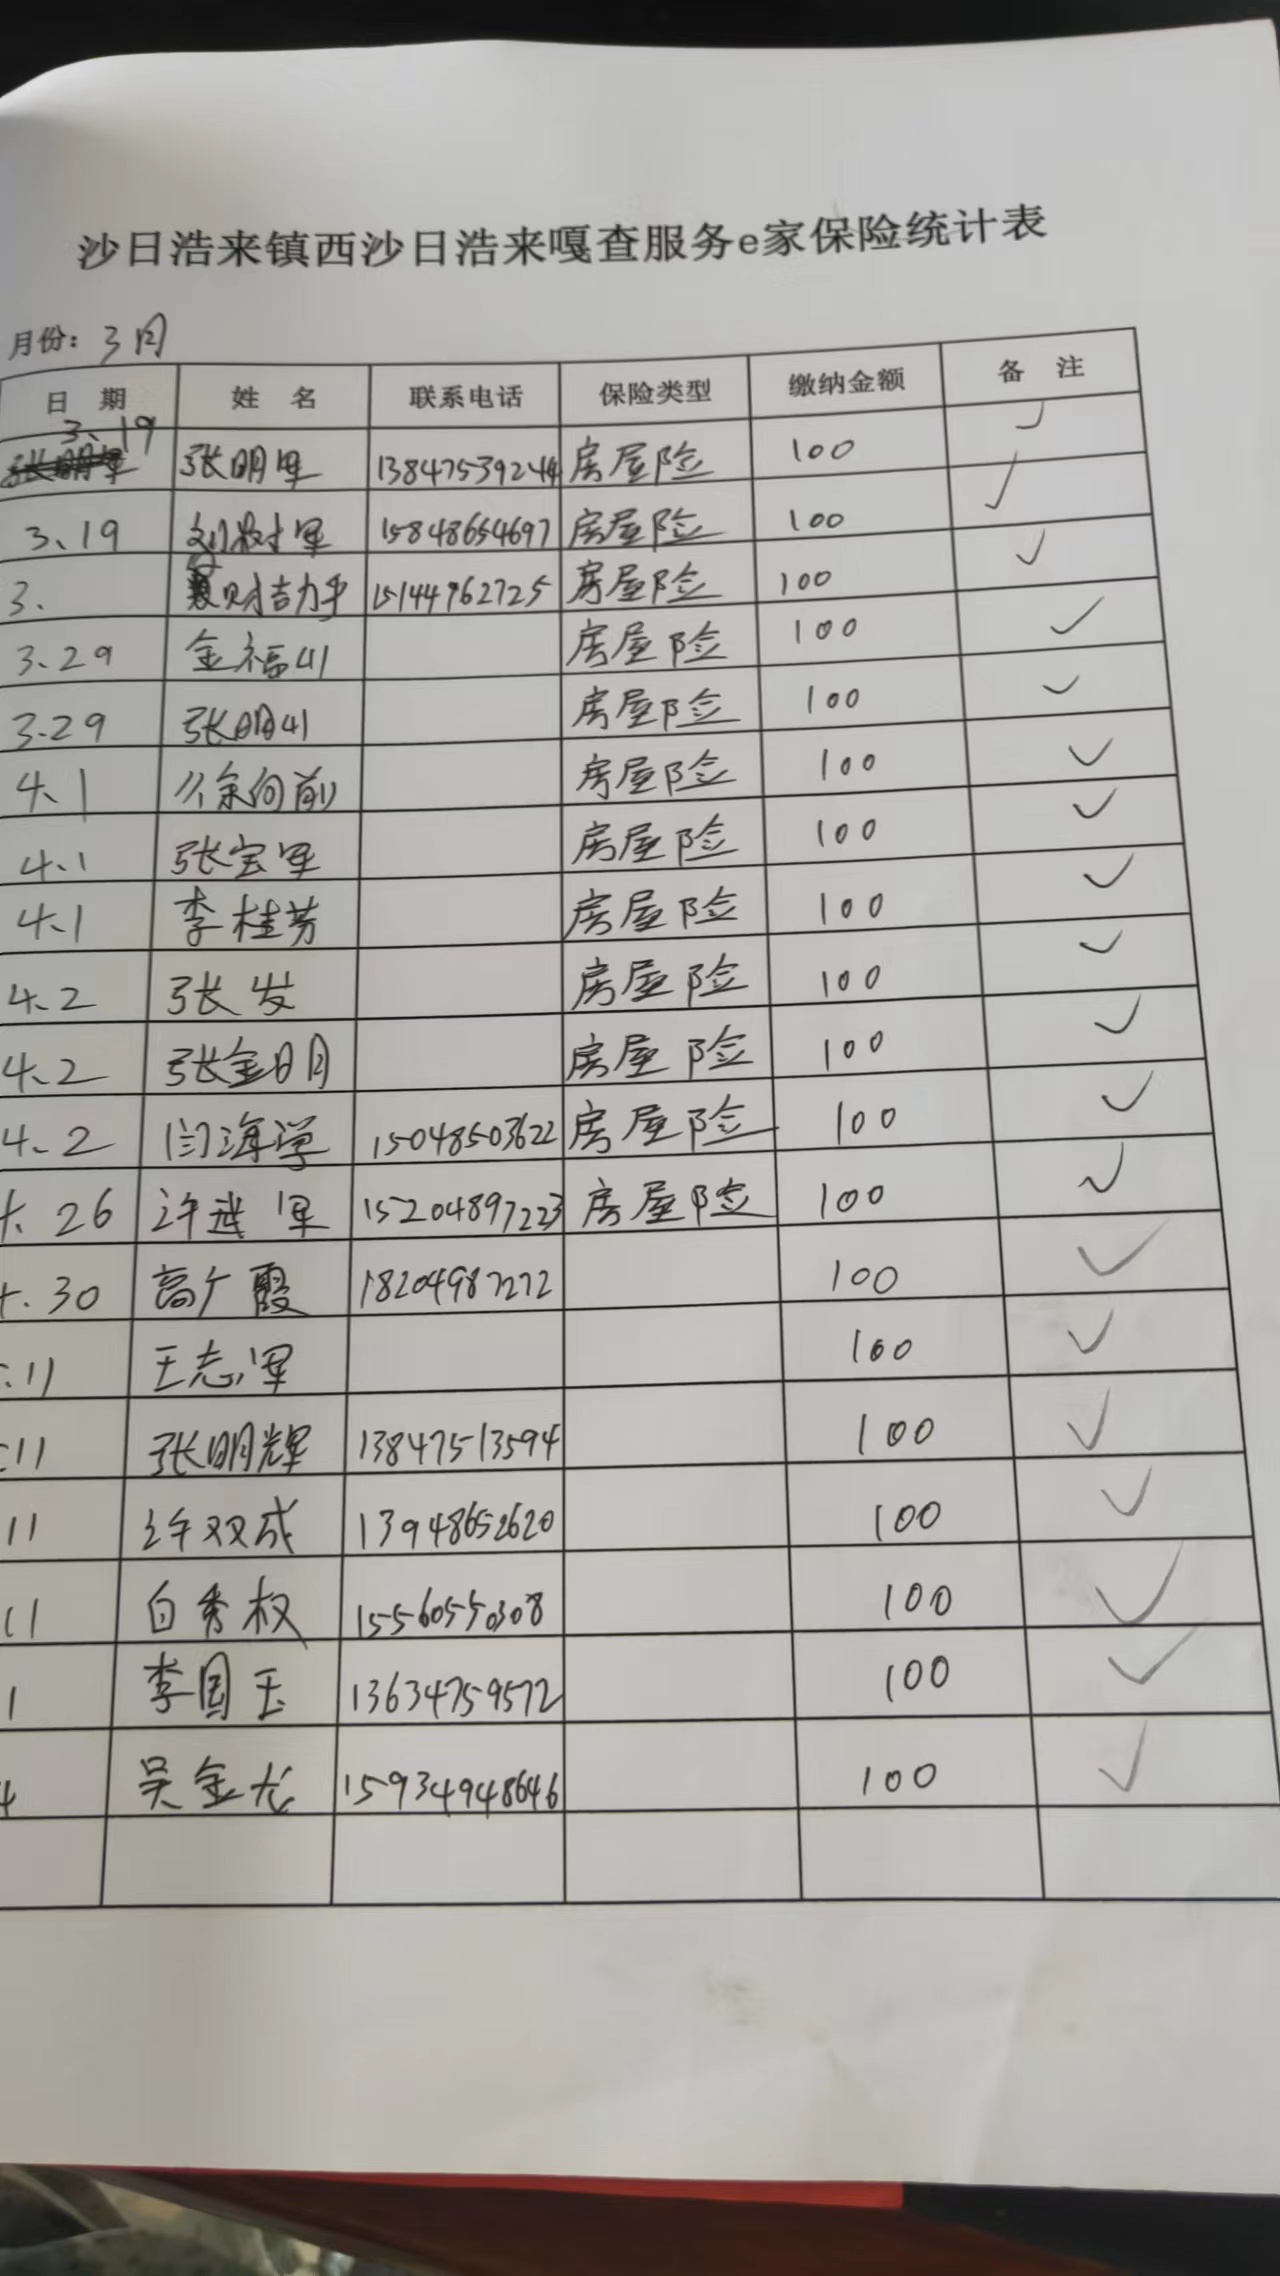 沙日浩来镇西沙日浩来嘎查服务e家保险统计表
月份: 3月
日 期 姓 名 联系电话 保险类型 缴纳金额 备 注
3、19 张明军 13847539244 房屋险 100 ✓
3、19 刘树军 15848654697 房屋险 100 ✓
3、 财吉力乎 15144962725 房屋险 100 ✓
3、29 金福山 房屋险 100 ✓
3.29 张明山 房屋险 100 ✓
4、1 徐向前 房屋险 100 ✓
4、1 张宝军 房屋险 100 ✓
4、1 李桂芳 房屋险 100 ✓
4、2 张发 房屋险 100 ✓
4、2 张金明 房屋险 100 ✓
4、2 闫海学 15048503622 房屋险 100 ✓
、26 许进军 15204897223 房屋险 100 ✓
、30 高广霞 18204987272 100 ✓
11 王志军 100 ✓
11 张明辉 13847513594 100 ✓
11 许双成 13948652620 100 ✓
11 白秀权 15560550308 100 ✓
1 李国玉 13634759572 100 ✓
4 吴金龙 15934948646 100 ✓